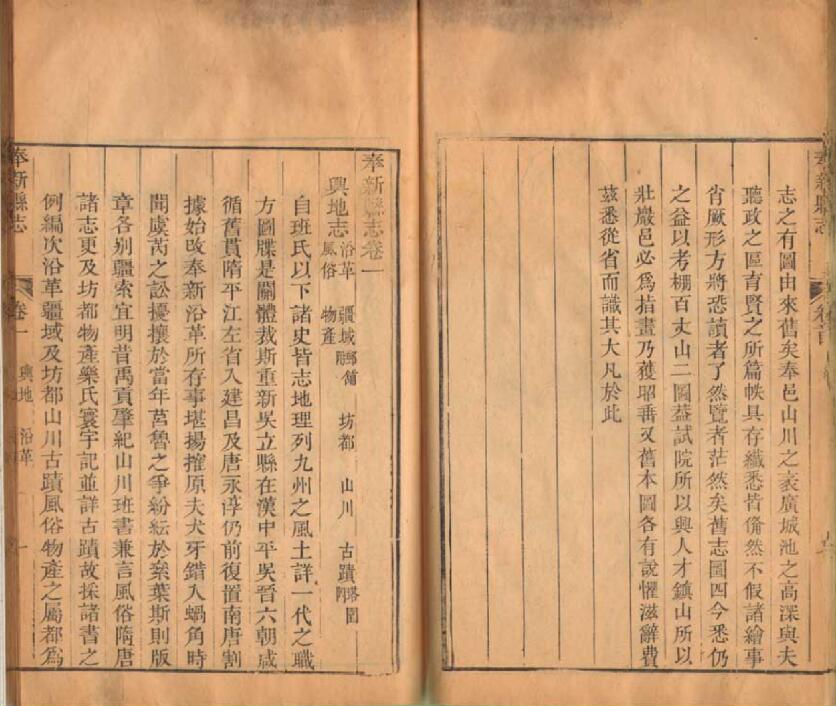 志之有圖由來舊矣奉邑山川之袤廣城池之高深與夫
聽政之區育賢之所篇帙具存纖悉皆備然不假諸繪事
省厥形方將恐讀者了然覽者茫然矣舊志圖四今悉仍
之益以考棚百丈山二圖葢試院所以興人才鎮山所以
壯巖邑必為指畫乃獲昭垂又舊本圖各有說懼滋辭費
茲悉從省而識其大凡於此
奉新縣志卷一
輿地志 沿革 疆域 鄉舖 坊都 山川 古蹟 塔 園
風俗 物產
自班氏以下諸史皆志地理列九州之風土詳一代之職
方圖牒是關體裁斯重新吳立縣在漢中平吳晉六朝咸
循舊貫隋平江左省入建昌及唐永淳仍前復置南唐割
據始改奉新沿革所存事堪揚搉原夫犬牙錯入蝸角時
聞虞芮之訟擾攘於當年莒魯之爭紛紜於奕葉斯則版
章各別疆索宜明昔禹貢肇紀山川班書兼言風俗隋唐
諸志更及坊都物產樂氏寰宇記並詳古蹟故採諸書之
例編次沿革疆域及坊都山川古蹟風俗物產之屬都為
奉新縣志 卷一 輿地 沿革 一